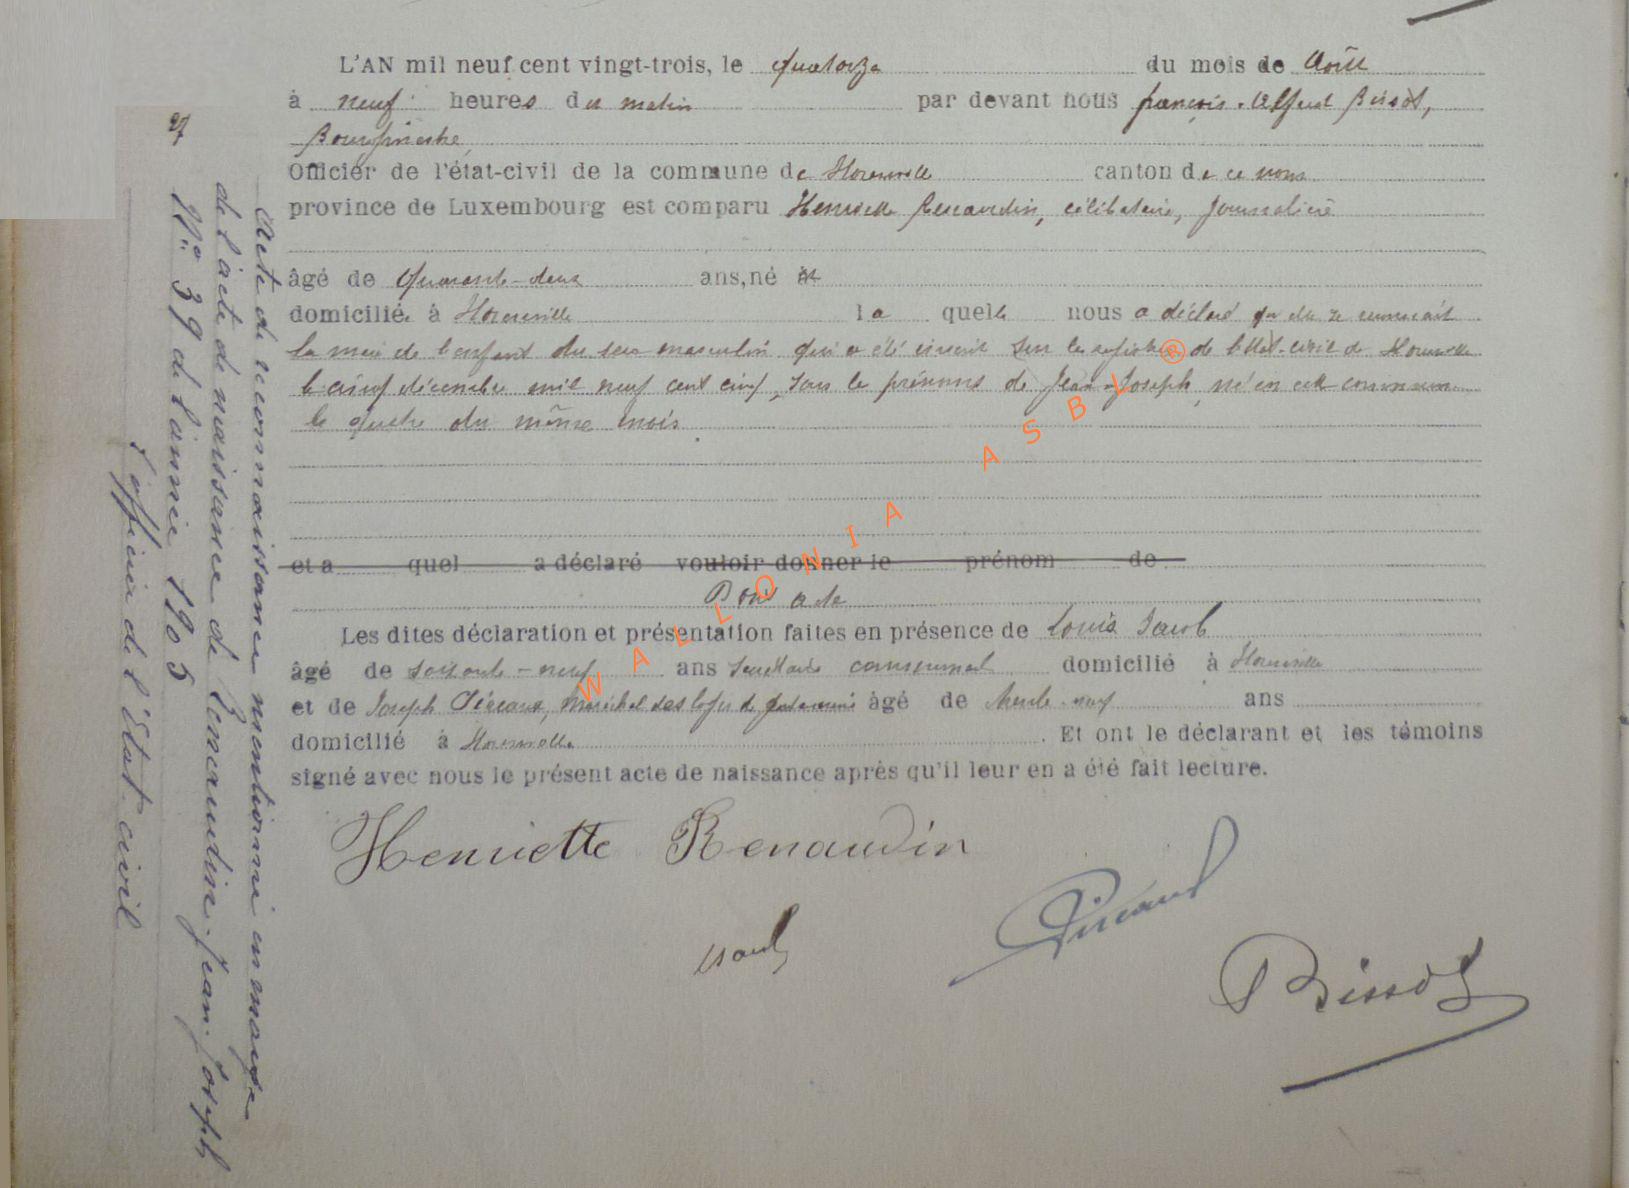 L'AN mil neuf cent vingt-trois, le quatorze du mois de Août
à neuf heures du matin par devant nous françois-Alfred Bissot,
Bourgmestre,
Officier de l'état-civil de la commune de canton de ce nom
province de Luxembourg est comparu Henriette Renaudin, célibataire, journalière
âgé de quarante-deux ans, né
domiciliée à la quelle nous a déclaré qu'elle se reconnaît
la mère de l'enfant du sexe masculin qui a été inscrit sur les registres de l'état-civil de
le cinq décembre mil neuf cent cinq, sous le prénoms de Jean-Joseph, né en cette commune
le quatre du même mois.
et a quel a déclaré vouloir donner le prénom de
Dont acte
Les dites déclaration et présentation faites en présence de Louis Jacob
âgé de soixante-neuf ans secrétaire communal domicilié à
et de Joseph maréchal des logis de gendarmerie âgé de trente-neuf ans
domicilié à . Et ont le déclarant et les témoins
signé avec nous le présent acte de naissance après qu'il leur en a été fait lecture.
Henriette Renaudin
Bissot
27
Acte de reconnaissance mentionné en marge
de l'acte de naissance de Renaudin Jean-Joseph
N° 39 de l'année 1905
L'officier de l'Etat-civil
WALLONIA ASBL ®